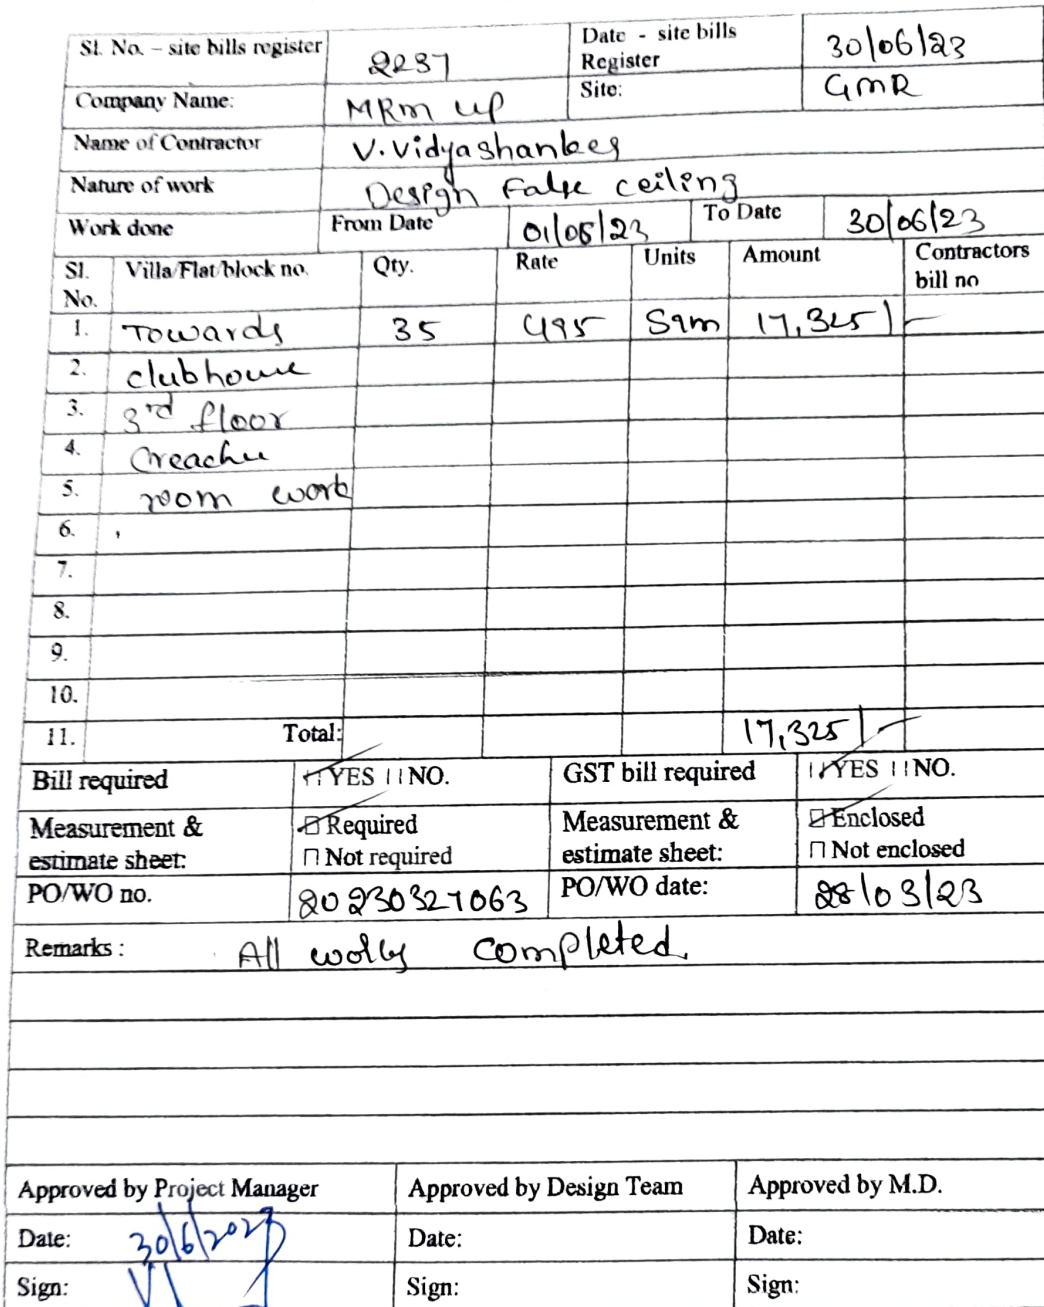 Sl. No. – site bills register 2237 Date - site bills Register 30/06/23
Company Name: MRM LLP Site: GMR
Name of Contractor V. Vidyashanker
Nature of work Design False ceiling
Work done From Date 01/06/23 To Date 30/06/23
Sl. No. Villa/Flat/block no. Qty. Rate Units Amount Contractors bill no
1. Towards 35 495 Sqm 17,325/-
2. clubhouse
3. 3rd floor
4. Creache
5. room work
6.
7.
8.
9.
10.
11. Total: 17,325/-
Bill required YES NO. GST bill required YES NO.
Measurement & estimate sheet: Required Measurement & estimate sheet: Enclosed
Not required Not enclosed
PO/WO no. 20230327063 PO/WO date: 28/03/23
Remarks : All works completed.
Approved by Project Manager Approved by Design Team Approved by M.D.
Date: 30/6/2023 Date: Date:
Sign: Sign: Sign: